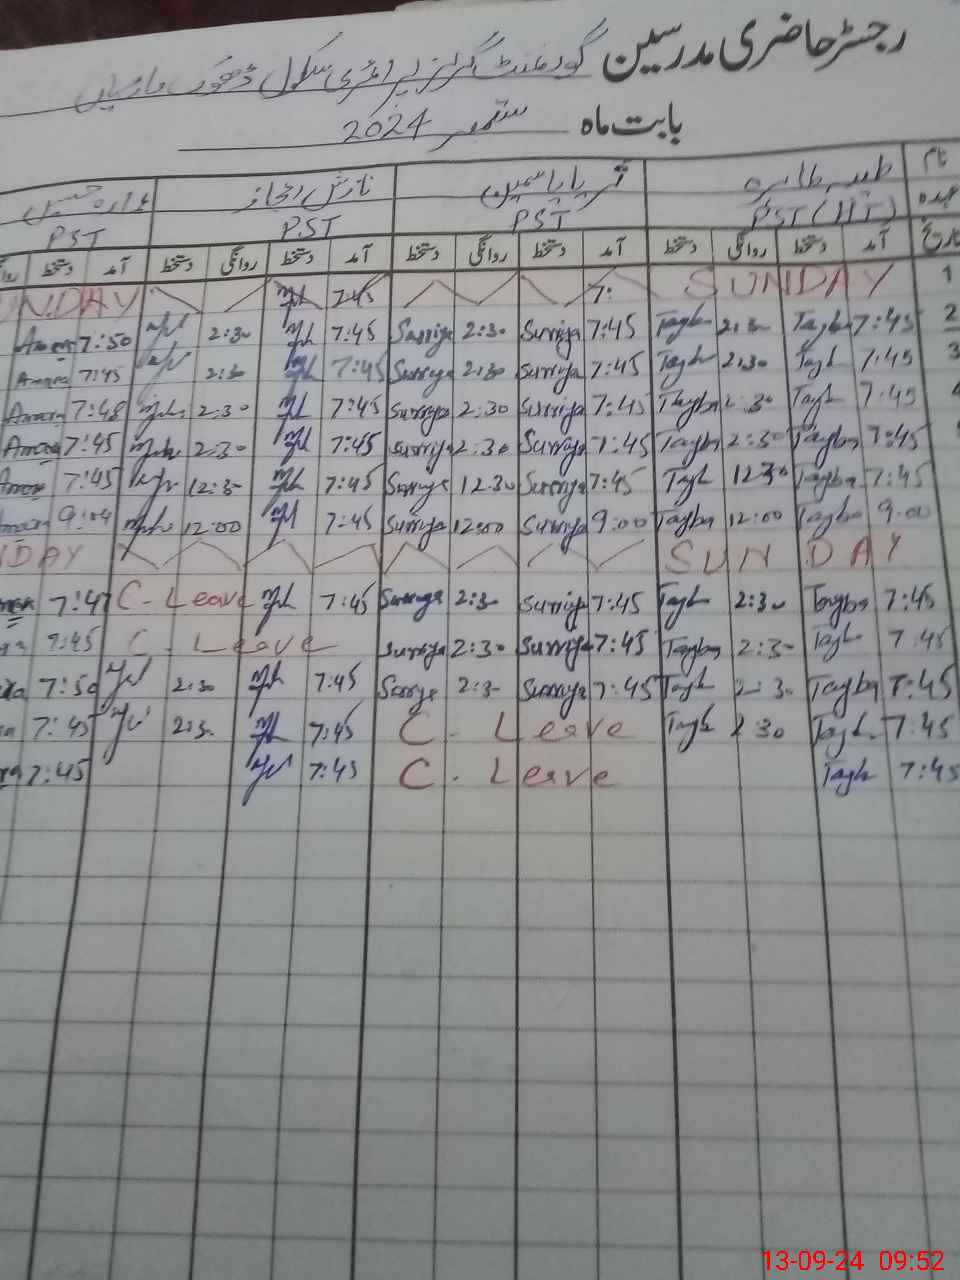 رجسٹر حاضری مدرسین گورنمنٹ گرلز پرائمری سکول ڈھوک
بابت ماہ ستمبر 2024
نام طیبہ طاہرہ ثریا یاسمین نازش اعجاز
عہدہ PST (IIT) PST PST PST
تاریخ آمد دستخط روانگی دستخط آمد دستخط روانگی دستخط آمد دستخط روانگی دستخط آمد دستخط
1 SUNDAY 7: 7:45 SUNDAY
2 7:45 Tayba 2:30 Tayba 7:45 Surriya 2:30 Surriya 7:45 2:30 7:50
3 7:45 Tayb 2:30 Tayba 7:45 Surriya 2:30 Surriya 7:45 2:30 7:45
7:45 Tayb 2:30 Tayba 7:45 Surriya 2:30 Surriya 7:45 2:30 7:48
7:45 Tayba 2:30 Tayba 7:45 Surriya 2:30 Surriya 7:45 2:30 7:45
7:45 Tayba 12:30 Tayb 7:45 Surriya 12:30 Surriya 7:45 12:30 7:45
9:00 Tayba 12:00 Tayba 9:00 Surriya 12:00 Surriya 7:45 12:00 9:04
SUNDAY NDAY
7:45 Tayba 2:30 Tayb 7:45 Surriya 2:30 Surriya 7:45 C-Leave 7:47
7:45 Tayb 2:30 Tayba 7:45 Surriya 2:30 Surriya C. Leave 7:45
7:45 Tayba 2:30 Tayb 7:45 Surriya 2:30 Surriya 7:45 2:30 7:50
7:45 Tayb 2:30 Tayb C. Leave 7:45 2:30 7:45
7:45 Tayb C. Leave 7:45 7:45
13-09-24 09:52